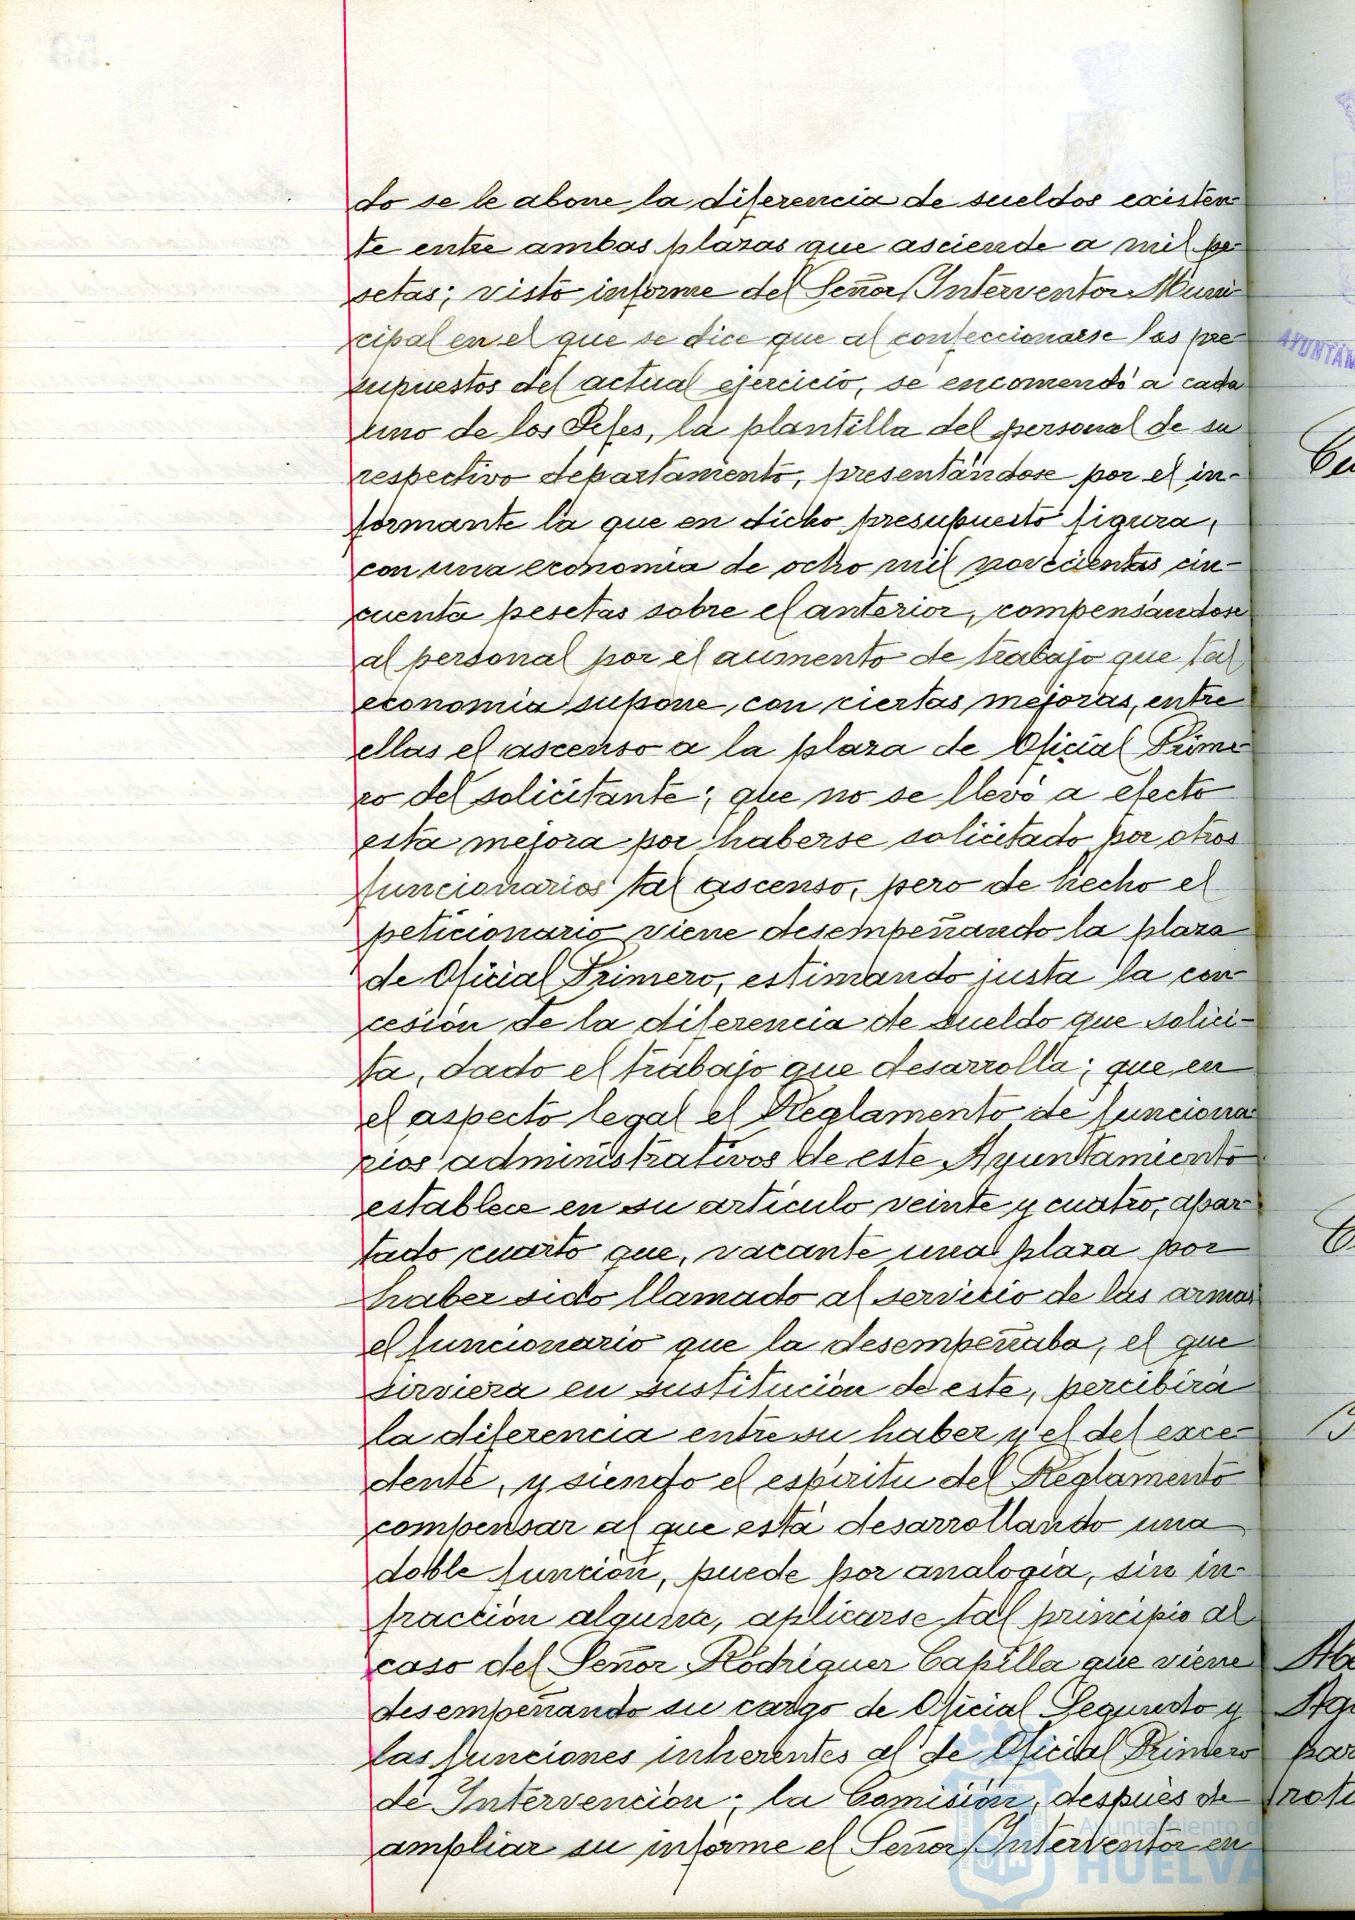 do se le abone la diferencia de sueldos existen-
te entre ambas plazas que asciende a mil pe-
setas; visto informe del Señor Interventor Muni-
cipal en el que se dice que al confeccionarse los pre-
supuestos del actual ejercicio, se encomendó a cada
uno de los Jefes, la plantilla del personal de su
respectivo departamento, presentándose por el in-
formante la que en dicho presupuesto figura,
con una economía de ocho mil novecientas cin-
cuenta pesetas sobre el anterior, compensándose
al personal por el aumento de trabajo que tal
economía supone, con ciertas mejoras, entre
ellas el ascenso a la plaza de Oficial Prime-
ro del solicitante; que no se llevó a efecto
esta mejora por haberse solicitado por otros
funcionarios tal ascenso, pero de hecho el
peticionario viene desempeñando la plaza
de Oficial Primero, estimando justa la con-
cesión de la diferencia de sueldo que solici-
ta, dado el trabajo que desarrolla; que en
el aspecto legal el Reglamento de funciona-
rios administrativos de este Ayuntamiento
establece en su artículo veinte y cuatro, apar-
tado cuarto que, vacante una plaza por
haber sido llamado al servicio de las armas
el funcionario que la desempeñaba, el que
sirviera en sustitución de este, percibirá
la diferencia entre su haber y el del exce-
dente, y siendo el espíritu del Reglamento
compensar al que está desarrollando una
doble función, puede por analogía, sin in-
fracción alguna, aplicarse tal principio al
caso del Señor Rodríguez Capilla que viene
desempeñando su cargo de Oficial Segundo y
las funciones inherentes al de Oficial Primero
de Intervención; la Comisión, después de
ampliar su informe el Señor Interventor en
Ayuntamiento de
HUELVA
AYUNTAM